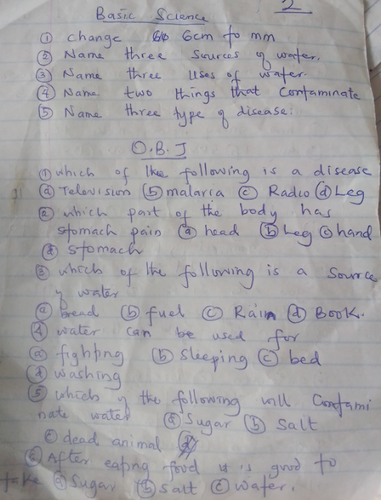 2
Basic Science
① change 6cm to mm
② Name three Sources of water.
③ Name three Uses of water.
④ Name two things that Contaminate
⑤ Name three type of disease.
O.B.J
① which of the following is a disease
ⓐ Television ⓑ malaria ⓒ Radio ⓓ Leg
② which part of the body has
stomach pain ⓐ head ⓑ Leg ⓒ hand
ⓓ stomach
③ which of the following is a Source
of water
ⓐ bread ⓑ fuel ⓒ Rain ⓓ Book.
④ water can be used for
ⓐ fighting ⓑ Sleeping ⓒ bed
ⓓ washing
⑤ which of the following will Contami
nate water ⓐ Sugar ⓑ Salt
ⓒ dead animal ⓓ
⑥ After eating food it is good to
take ⓐ Sugar ⓑ Salt ⓒ water.